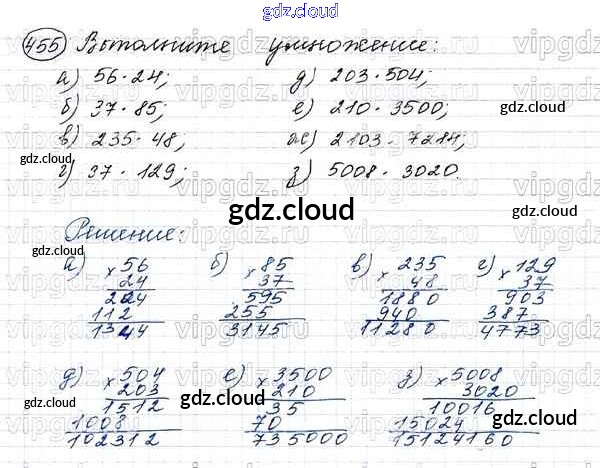 gdz.cloud
455 Выполните умножение:
а) 56·24; д) 203·504;
б) 37·85; е) 210·3500;
в) 235·48; ж) 2103·7214;
г) 37·129; з) 5008·3020.
Решение:
а) ×56 б) ×85 в) ×235 г) ×129
24 37 48 37
224 595 1880 903
112 255 940 387
1344 3145 11280 4773
д) ×504 е) ×3500 з) ×5008
203 210 3020
1512 35 10016
1008 70 15024
102312 735000 15124160
gdz.cloud
gdz.cloud
gdz.cloud
gdz.cloud
gdz.cloud
gdz.cloud
gdz.cloud
gdz.cloud
gdz.cloud